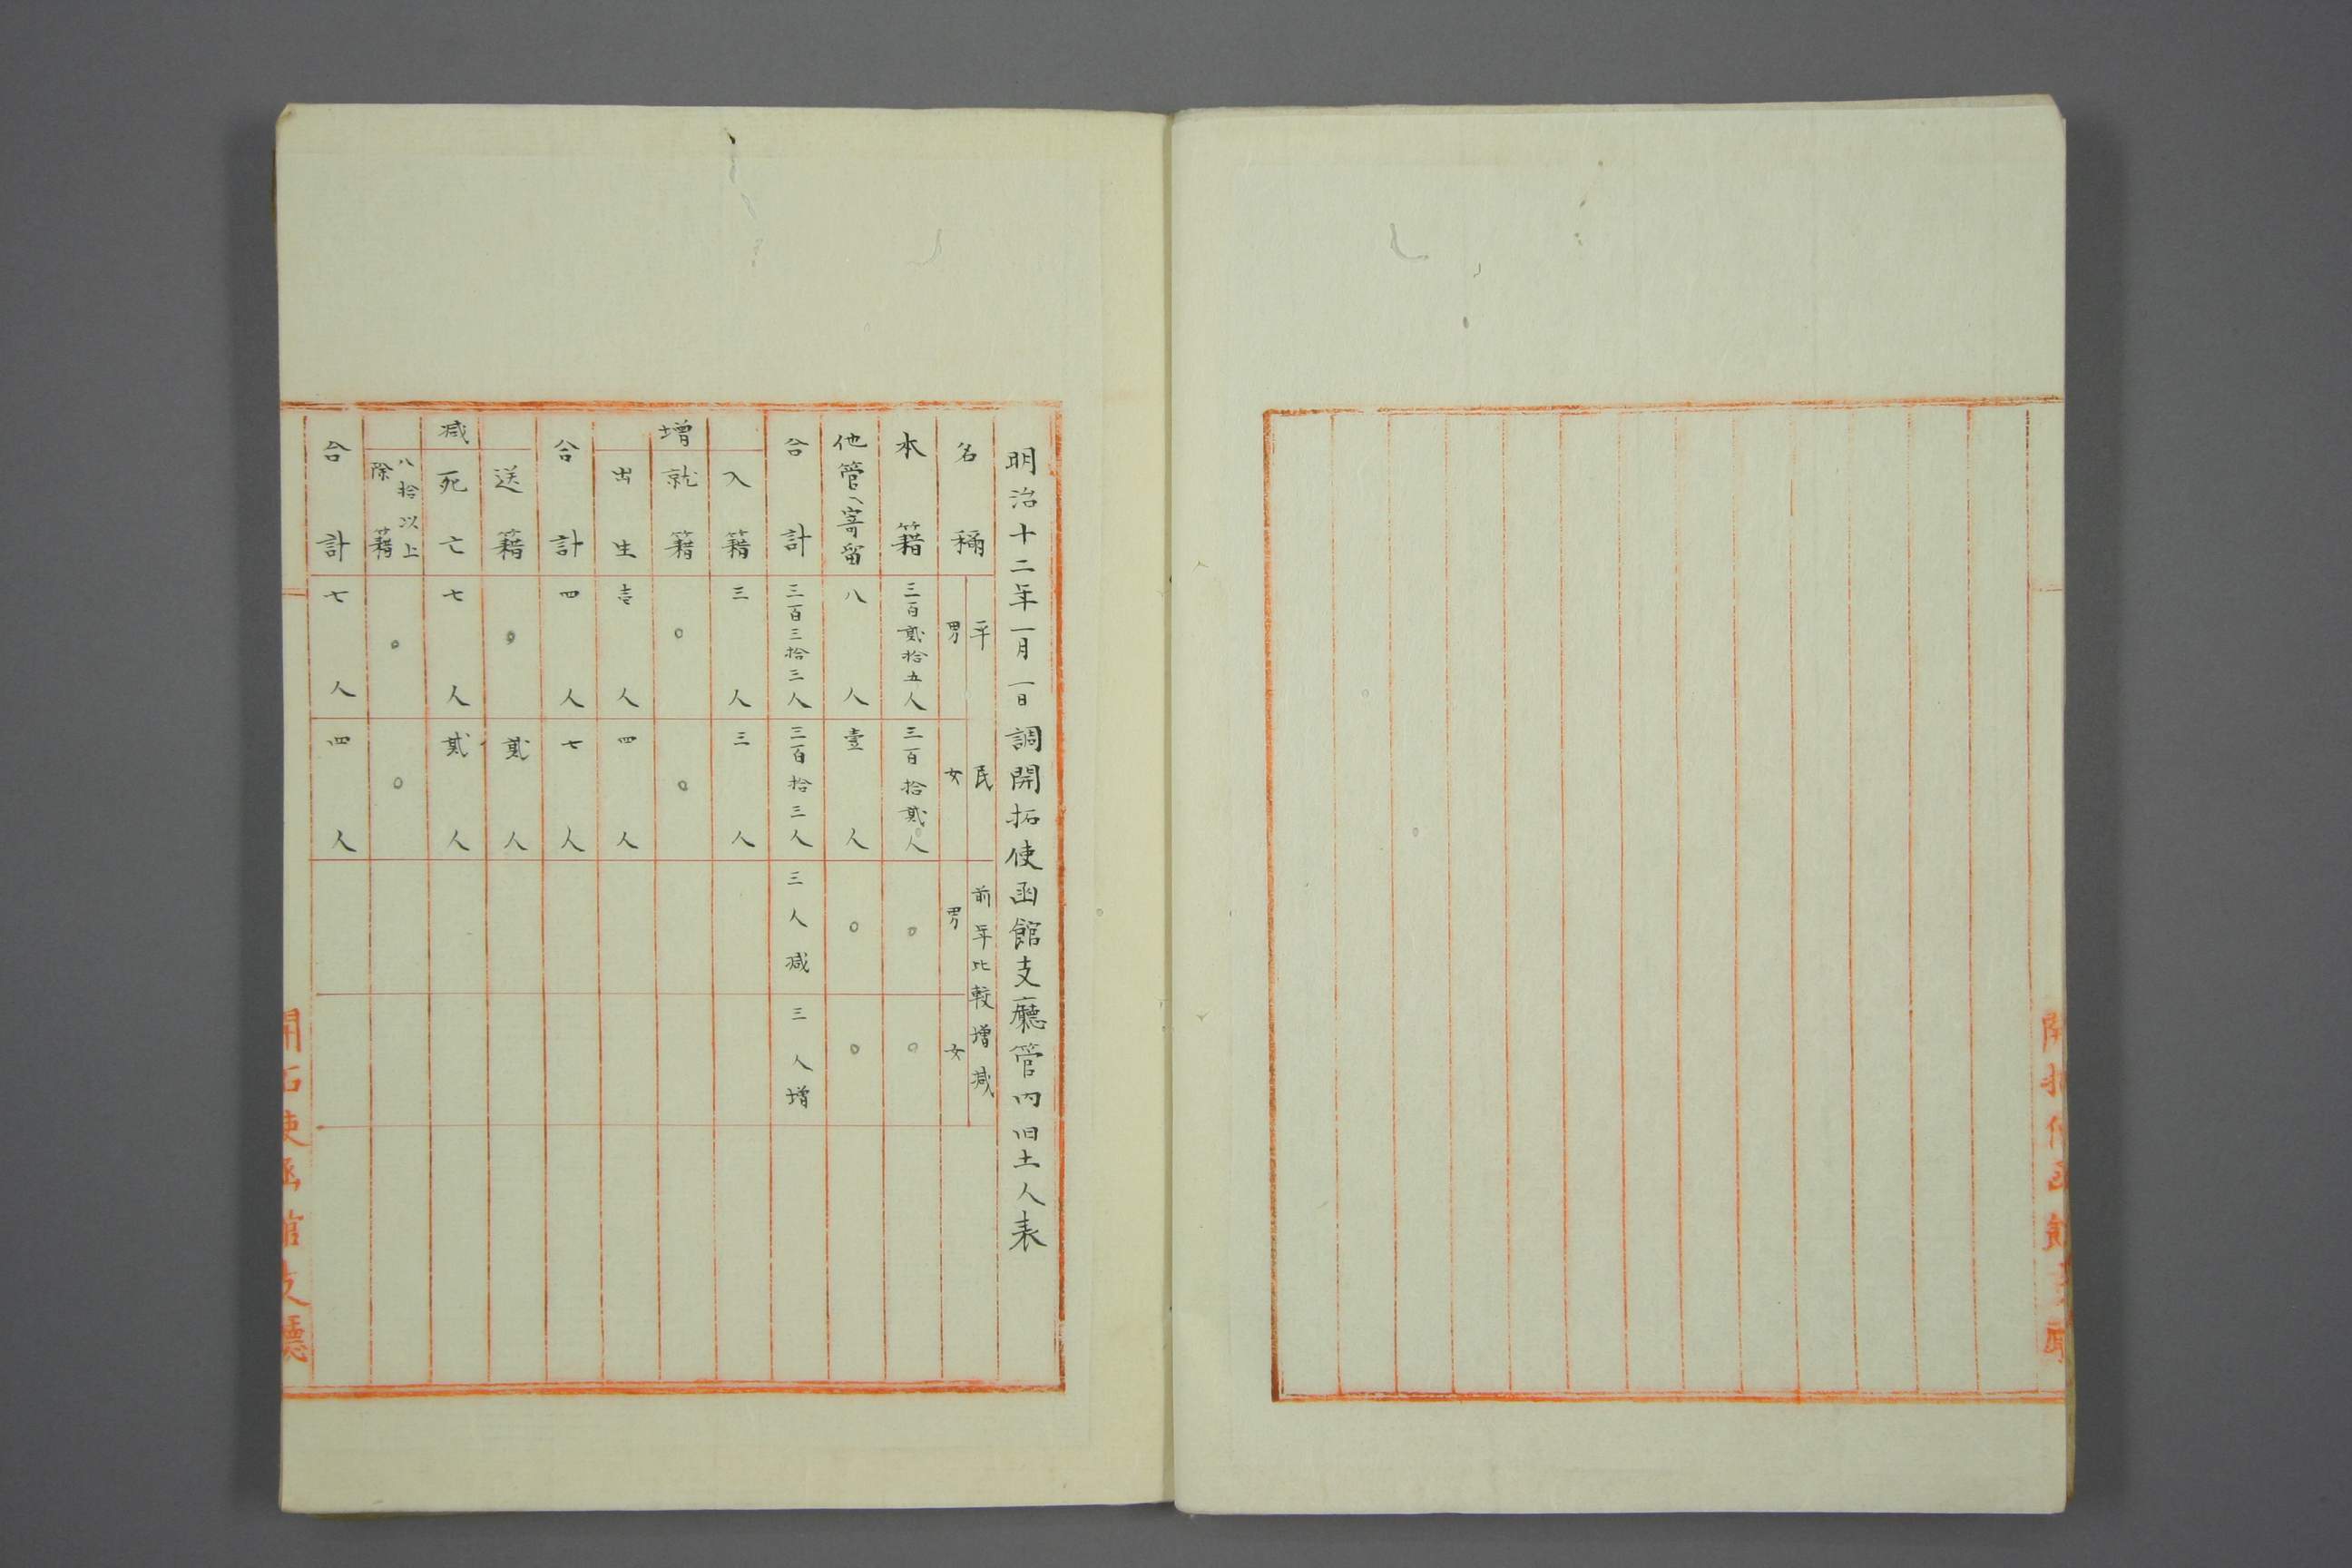 明治十二年一月一日調開拓使函館支廳管内旧土人表
名稱 平民 男 女 前年比較増减 男 女
本籍 三百貳拾五人 三百拾貳人 〇 〇
他管ヘ寄留 八人 壹人 〇 〇
合計 三百三拾三人 三百拾三人 三人减 三人増
増
入籍 三人 三人
就籍 〇 〇
出生 壱人 四人
合計 四人 七人
减
送籍 〇 貳人
死亡 七人 貳人
八拾以上除籍 〇 〇
合計 七人 四人
開拓使函館支廳
開拓使函館支廳